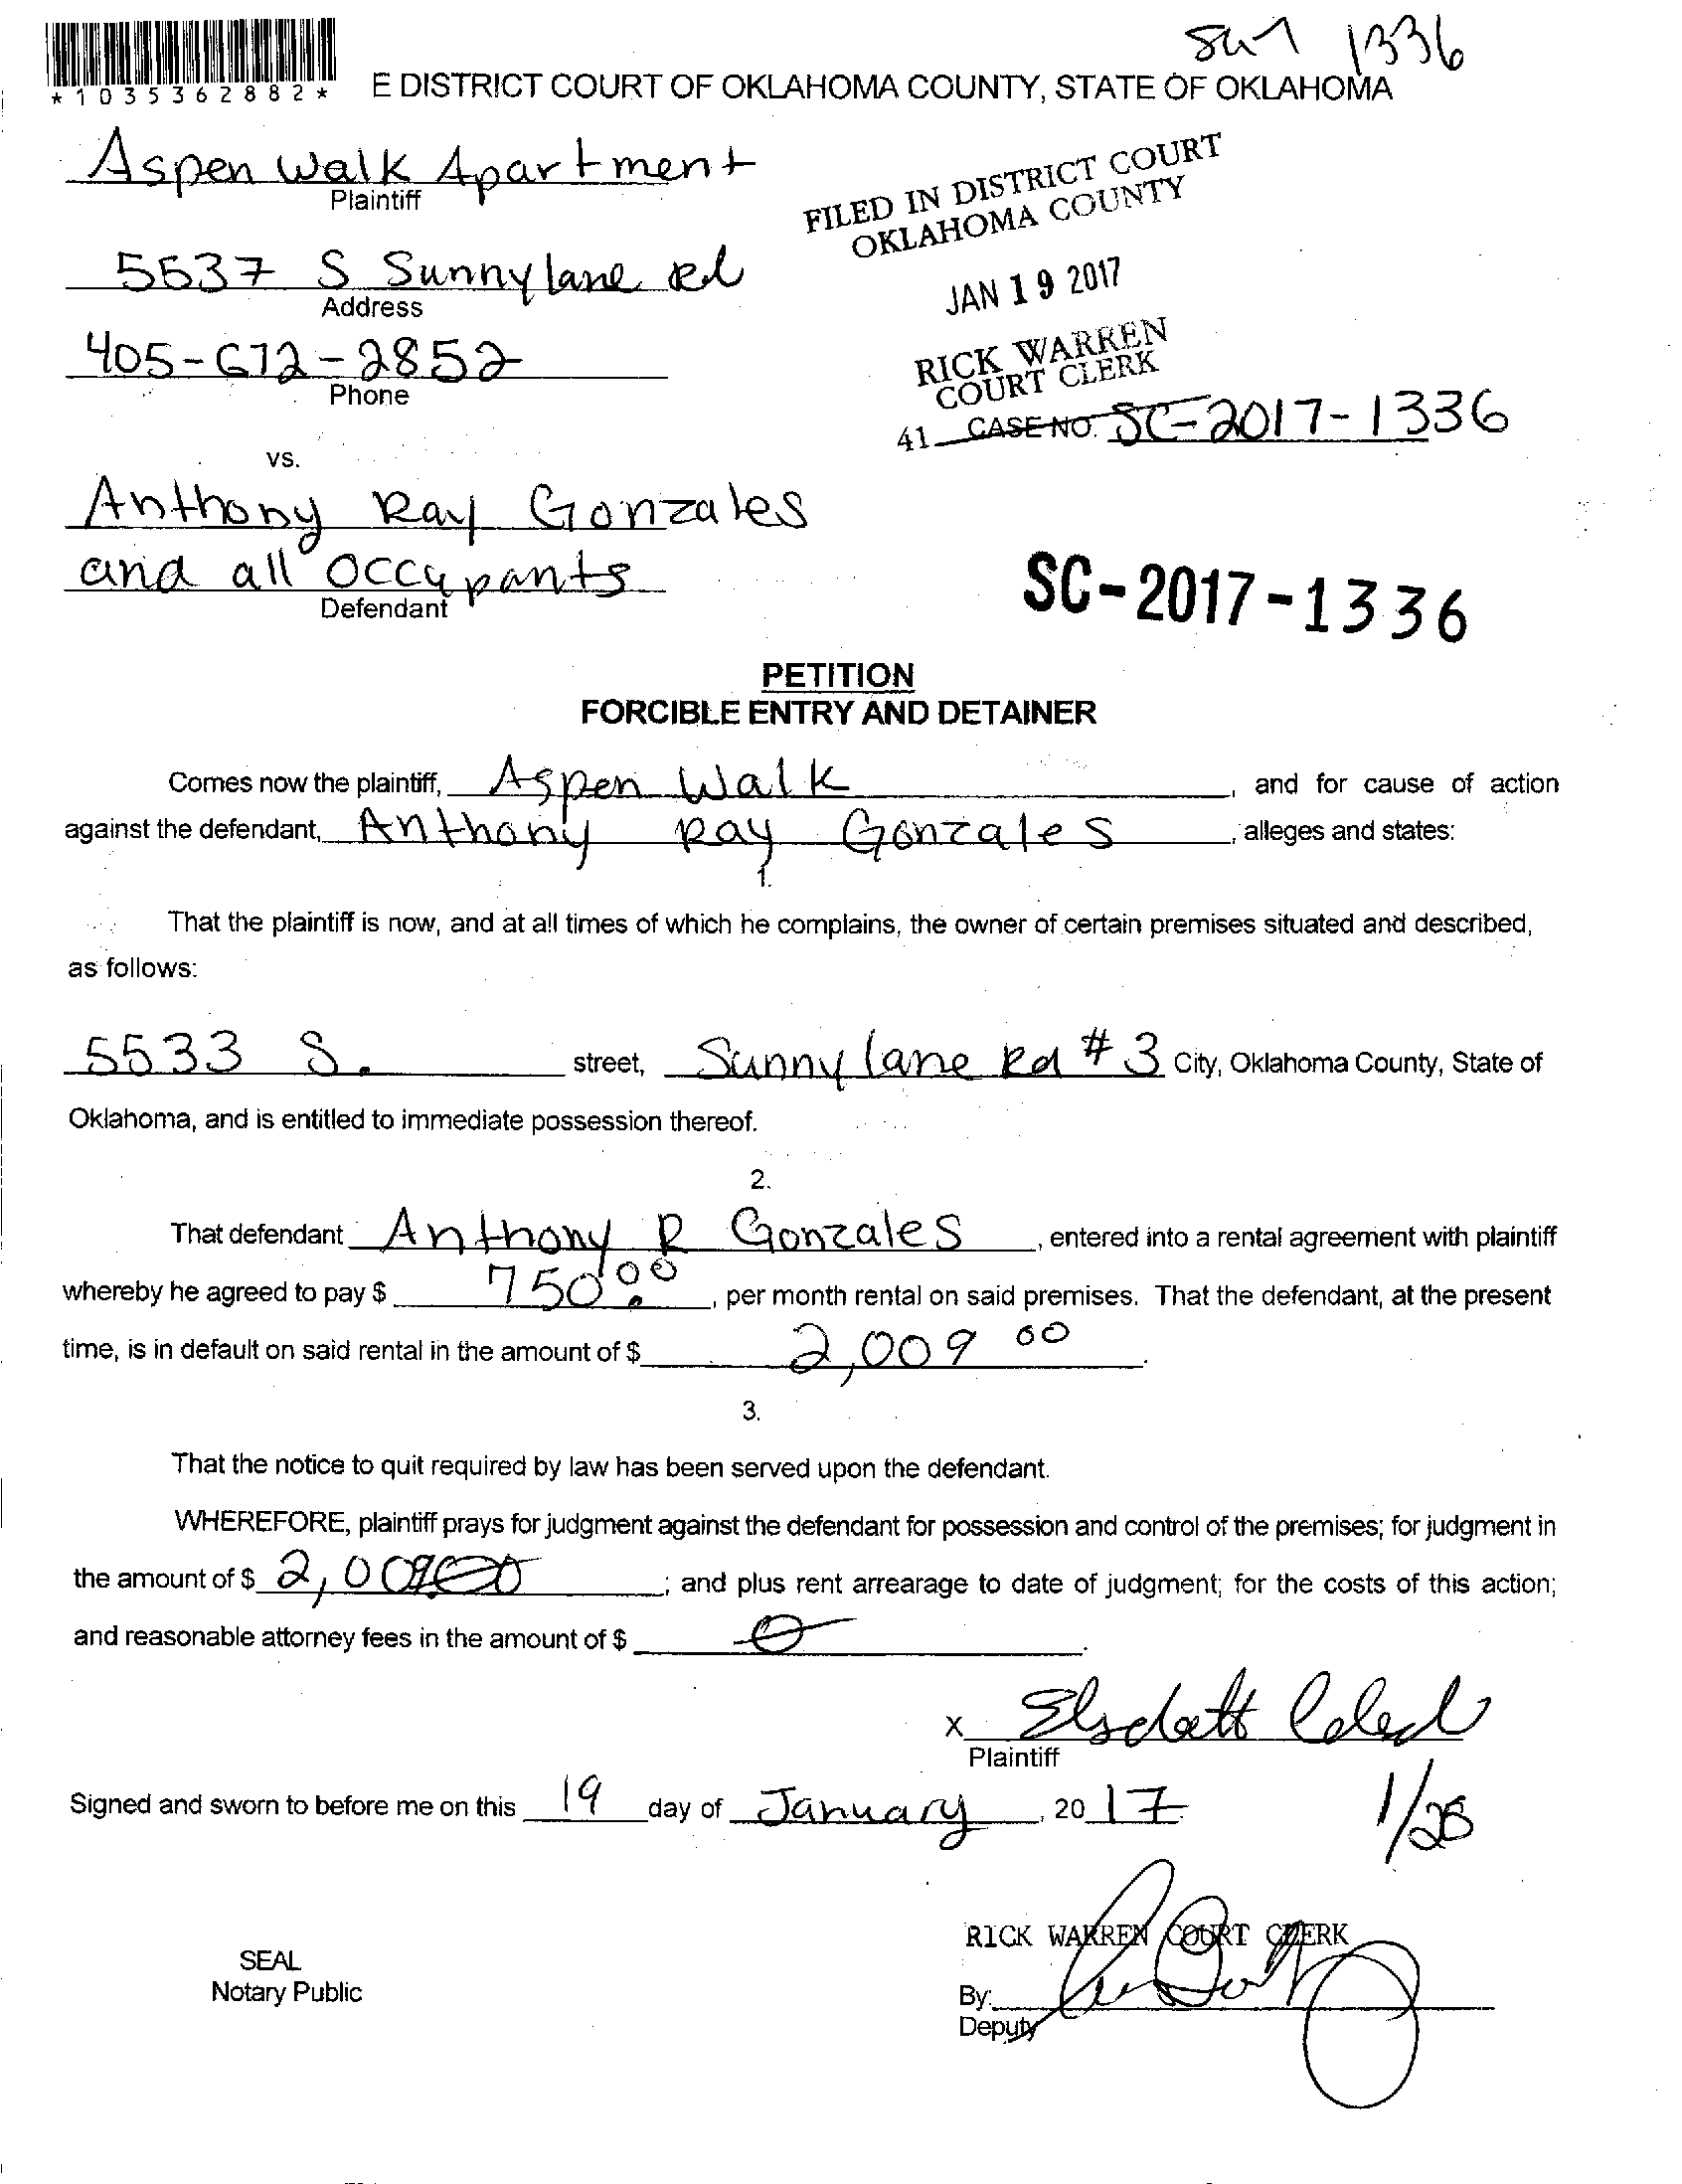 SC17 1336
*1035362882*
E DISTRICT COURT OF OKLAHOMA COUNTY, STATE OF OKLAHOMA
Aspen Walk Apartment
Plaintiff
FILED IN DISTRICT COURT
OKLAHOMA COUNTY
5537 S Sunnylane Rd
Address
JAN 19 2017
405-672-2852
Phone
RICK WARREN
COURT CLERK
41 CASE NO. SC-2017-1336
vs.
Anthony Ray Gonzales
and all occupants
Defendant
SC-2017-1336
PETITION
FORCIBLE ENTRY AND DETAINER
Comes now the plaintiff, Aspen Walk, and for cause of action
against the defendant, Anthony Ray Gonzales, alleges and states:
1.
That the plaintiff is now, and at all times of which he complains, the owner of certain premises situated and described,
as follows:
5533 S. street, Sunnylane Rd #3 City, Oklahoma County, State of
Oklahoma, and is entitled to immediate possession thereof.
2.
That defendant Anthony R Gonzales, entered into a rental agreement with plaintiff
whereby he agreed to pay $ 750.00, per month rental on said premises. That the defendant, at the present
time, is in default on said rental in the amount of $ 2,009 00.
3.
That the notice to quit required by law has been served upon the defendant.
WHEREFORE, plaintiff prays for judgment against the defendant for possession and control of the premises; for judgment in
the amount of $ 2,009.00; and plus rent arrearage to date of judgment; for the costs of this action;
and reasonable attorney fees in the amount of $ 0.
X
Plaintiff
Signed and sworn to before me on this 19 day of January, 2017
RICK WARREN COURT CLERK
SEAL
Notary Public
By:
Deputy